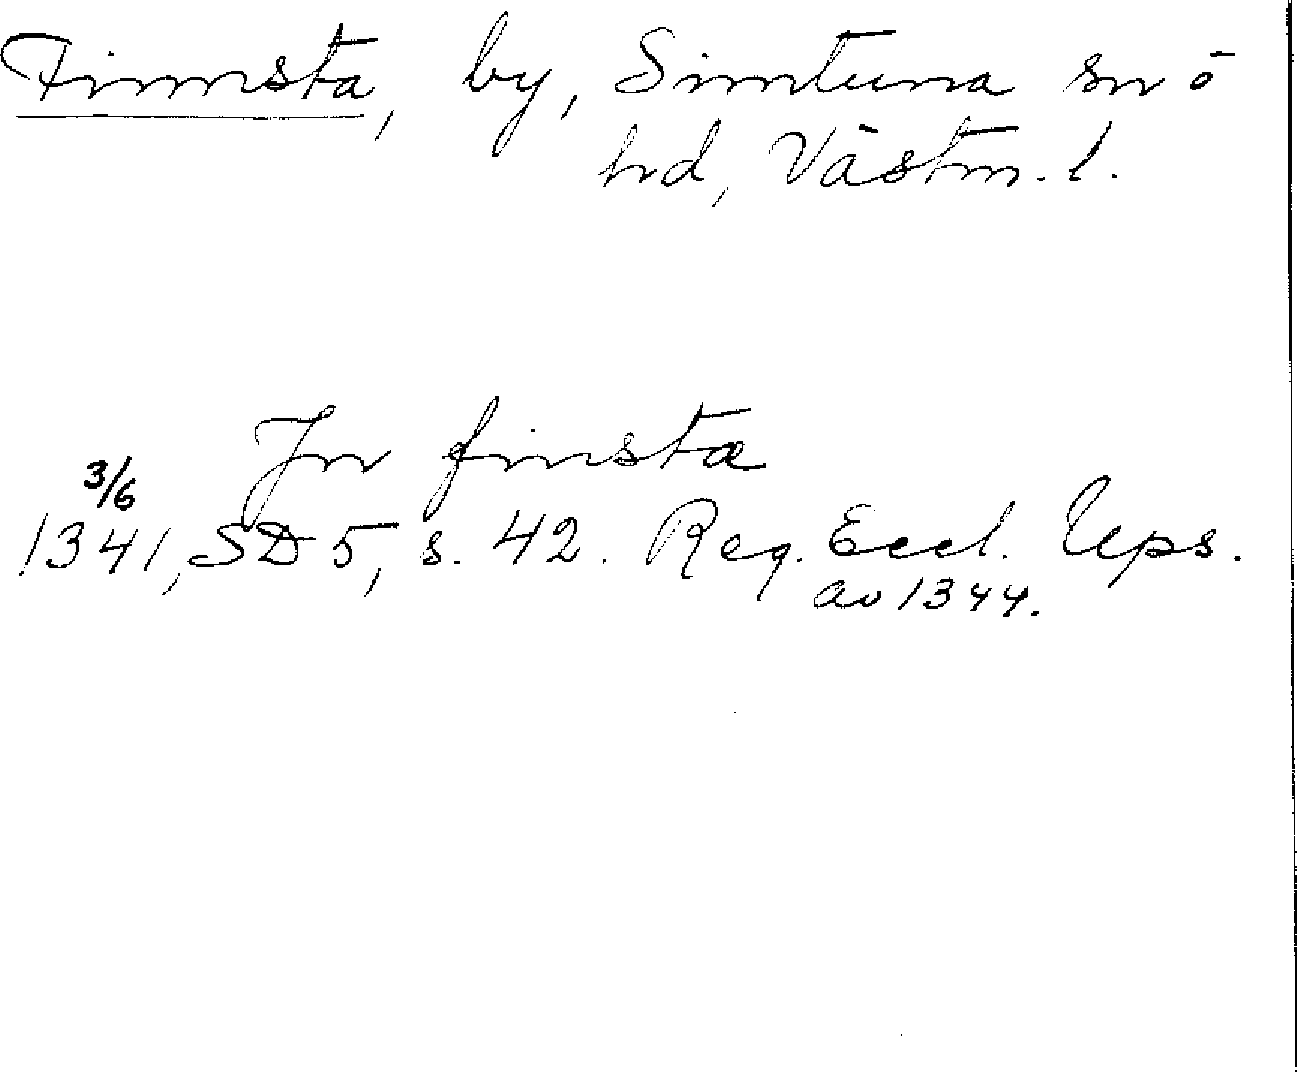 Finnsta, by, Simtuna sn o
hd, Västm. l.
Jn finsta
3/6
1341, SD 5, s. 42. Reg. Eccl. Ups.
av 1344.